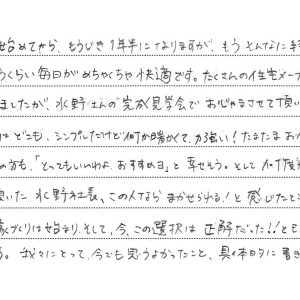 始めてから、もうじき1年半になりますが、もうそんなに
うくらい毎日がめちゃくちゃ快適です。たくさんの住宅メー
ましたが、水野さんの完成見学会でおじゃまさせて頂い
はどこも、シンプルだけど何か暖かくて、力強い!たまたまお
の方も、「とってもいいわよ、おすすめヨ」と幸せそう。そして
頂いた水野社長、この人ならまかせられる!と感じたと
家づくりは始まり、そして、今、この選択は正解だった!!と
う。我々にとって、今でも思うよかったこと、具体的に書き